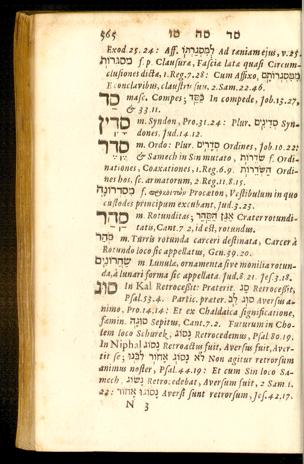 565 סד סה סו
Exod. 25.24: Aff. למסגרתו Ad taniam ejus, v. 25.
מסגרות f. p. Clausura, Fasciæ lata quasi Circum-
clusiones dicta, 1. Reg. 7. 28: Cum Affixo, ממסגרותם
E conclavibus, claustris suis, 2. Sam. 22. 46.
סד masc. Compes; בסד In compede, Job. 15. 27,
& 33. 11.
סדין m. Syndon, Prov. 31. 24: Plur. סדינים Syn-
dones. Jud. 14. 12.
סדר m. Ordo: Plur. סדרים Ordines, Job. 10. 22:
& Samech in Sin mutato, שדרות f. Ordi-
nationes, Coaxationes, 1. Reg. 6. 9. השדרות Ordi-
nes hos, sc. armatorum, 2. Reg. 11. 8. 15.
מסדרונה f. Procœton, Vestibulum in quo
custodes principum excubant. Jud. 3. 23.
סהר m. Rotunditas; אגן הסהר Crater rotundi-
tatis, Cant. 7. 2, id est, rotundus.
סהר m. Turris rotunda carceri destinata, Carcer à
Rotundo loco sic appellatus, Gen. 39. 20.
שהרונים m. Lunulæ, ornamenta sive monilia rotun-
da, à lunari forma sic appellata. Jud. 8. 21. Jes. 3. 18.
סוג In Kal Retrocessit: Præterit. סג Retrocessit,
Psal. 53. 4. Partic. præter. סוג לב Aversus a-
nimo, Pro. 14. 14: Et ex Chaldaica significatione,
fœmin. סוגה Sepitus, Cant. 7. 2. Futurum in Cho-
lem loco Schurek, נסוג Retrocedemus, Psal. 80. 19.
In Niphal נסוג Retroactus fuit, Aversus fuit, Aver-
tit se; לא נסוג אחור לבנו Non agitur retrorsum
animus noster, Psal. 44. 19: Et cum Sin loco Sa-
mech, נשוג Retrocedebat, Aversum fuit, 2 Sam. 1.
22: נסוגו אחור Aversi sunt retrorsum, Jes. 42. 17.
N 3